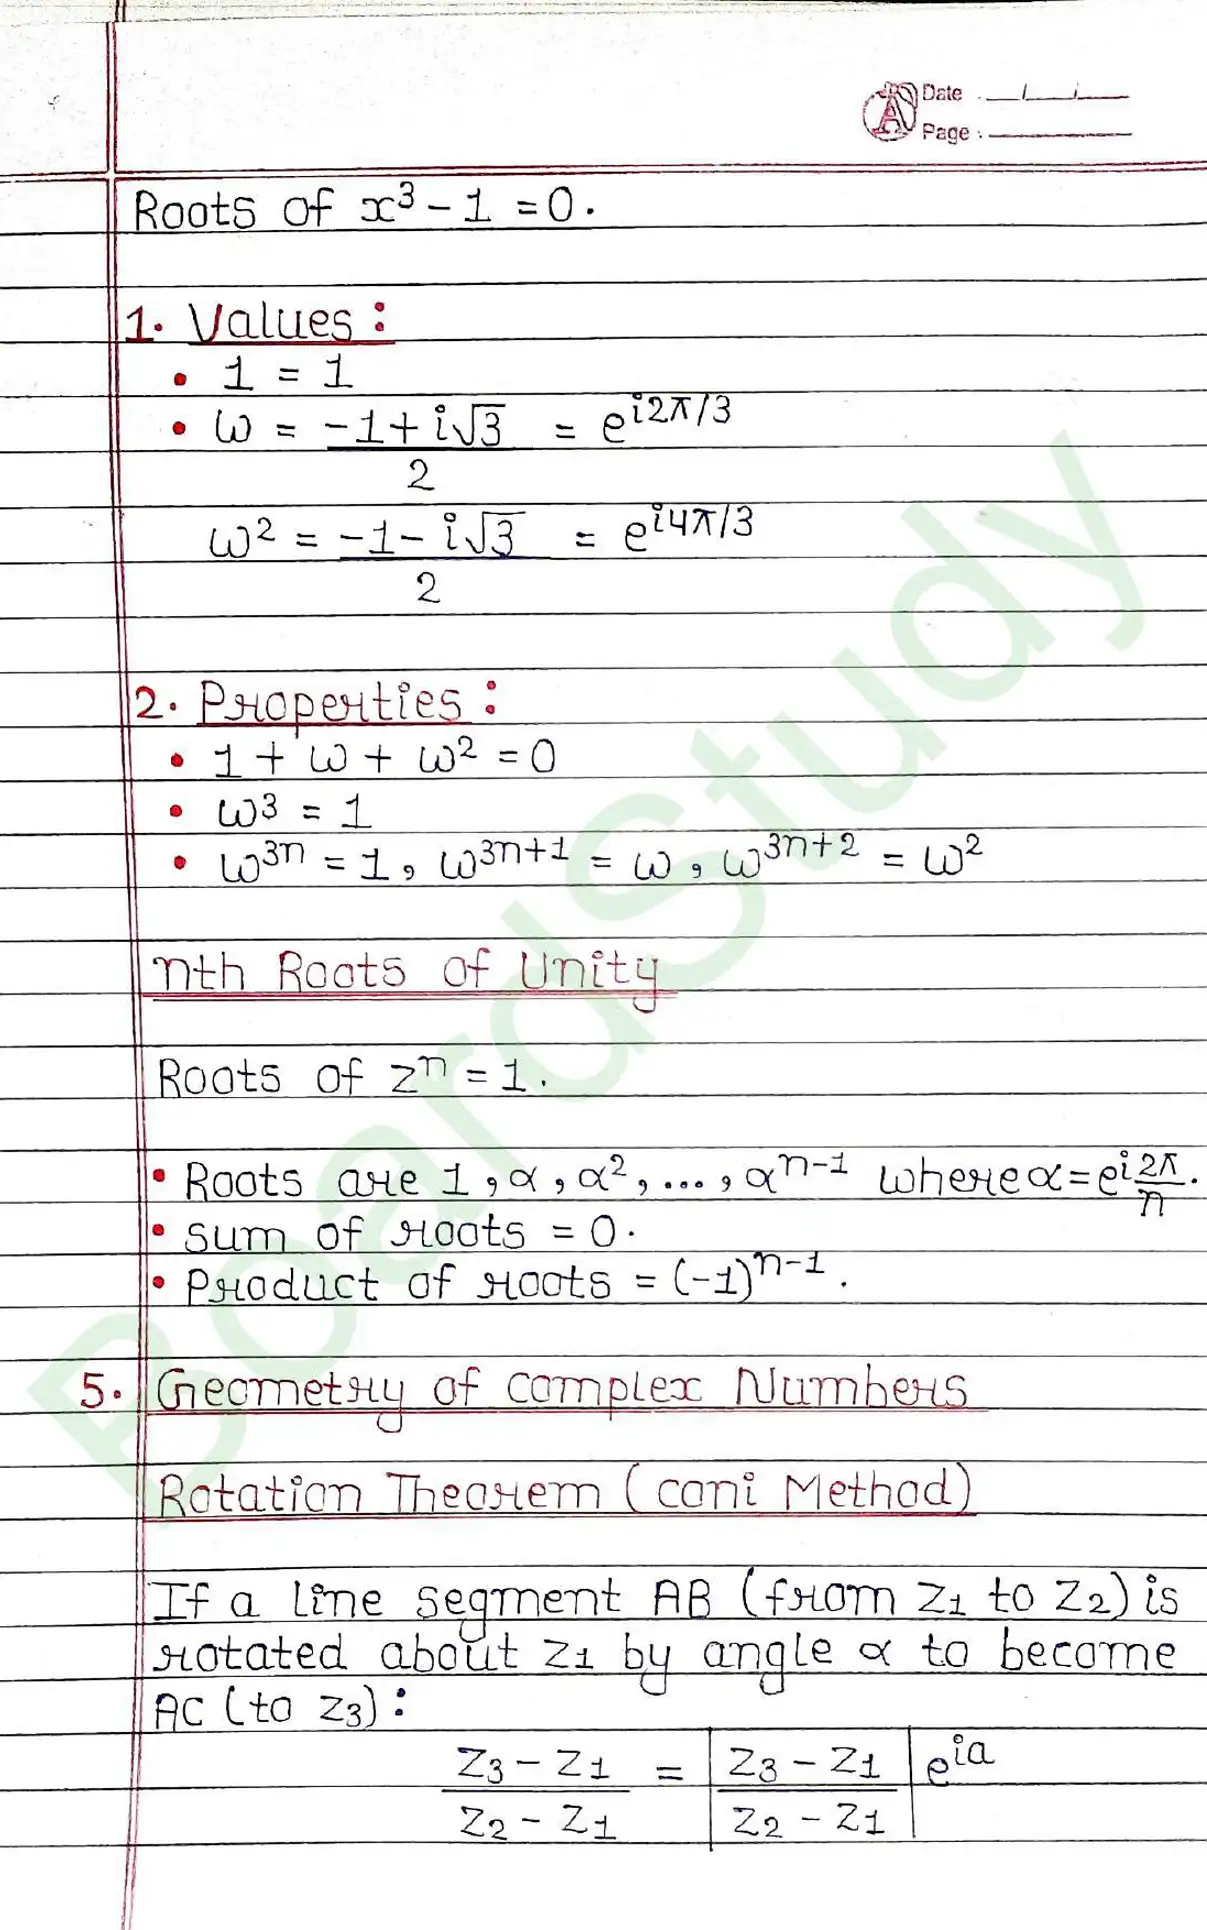 Date
Page :
Roots of x³ - 1 = 0.
1. Values :
• 1 = 1
• ω = (-1 + i√3)/2 = e^(i2π/3)
ω² = (-1 - i√3)/2 = e^(i4π/3)
2. Properties :
• 1 + ω + ω² = 0
• ω³ = 1
• ω^(3n) = 1, ω^(3n+1) = ω, ω^(3n+2) = ω²
nth Roots of Unity
Roots of zⁿ = 1.
• Roots are 1, α, α², ..., α^(n-1) where α = e^(i 2π/n).
• sum of roots = 0.
• Product of roots = (-1)^(n-1).
5. Geometry of complex Numbers
Rotation Theorem (coni Method)
If a line segment AB (from z₁ to z₂) is
rotated about z₁ by angle α to become
AC (to z₃) :
(z₃ - z₁)/(z₂ - z₁) = |(z₃ - z₁)/(z₂ - z₁)| e^(ia)
BoardStudy